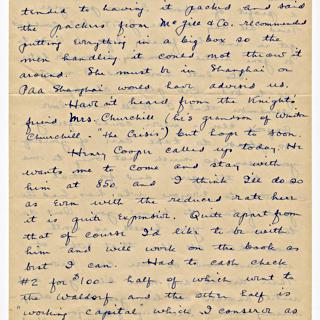 tended to having it packed and said
the packers from McGill & Co. recommended
putting everything in a big box so the
men handling it could not throw it
around. She must be in Shanghai or
PAA Shanghai would have advised us.
Haven't heard from the Knights
friend Mrs. Churchill (he's grandson of Winston
Churchill - "The Crisis") but hope to soon.
Henry Cooper called up today. He
wants me to come and stay with
him at 850 and I think I'll do so
as even with the reduced rate here
it is quite expensive. Quite apart from
that of course I'd like to be with
him and will work on the book as
best I can. Had to cash check
#2 for $100 - half of which went to
the Waldorf and the other half is
"working capital" which I conserve as